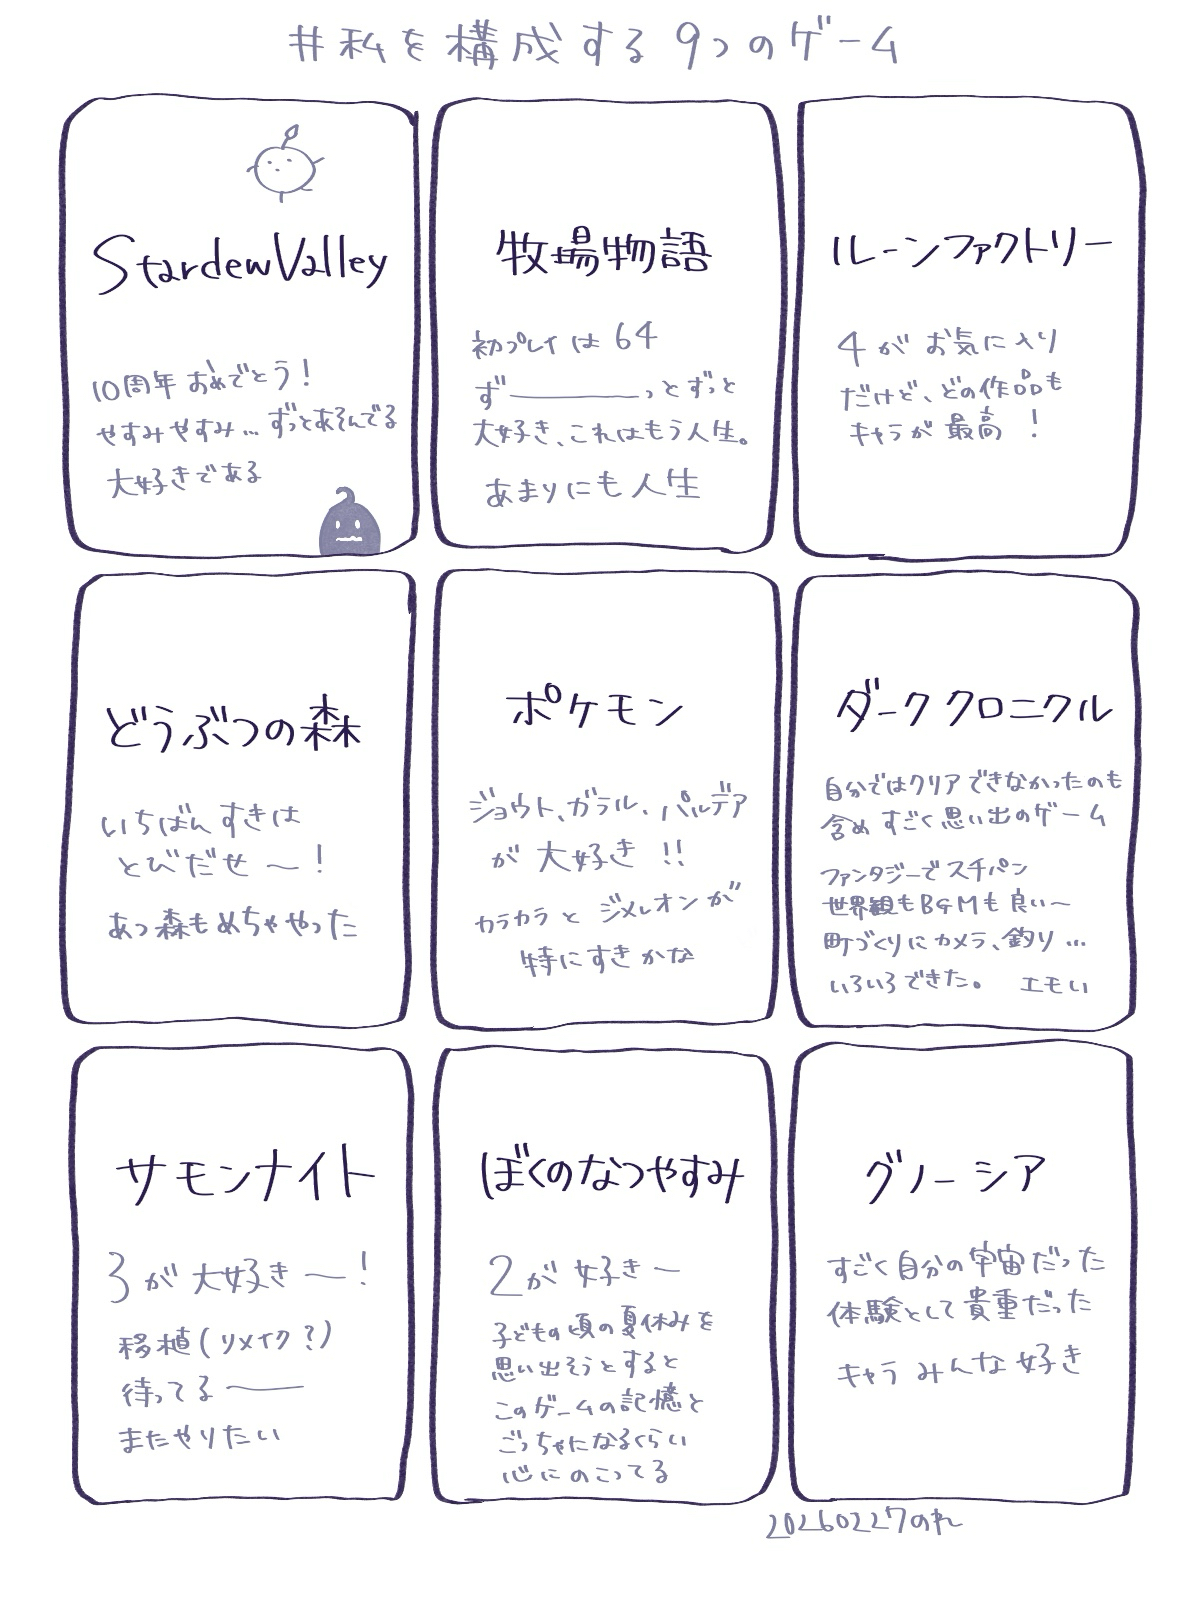 #私を構成する9つのゲーム
StardewValley
10周年おめでとう!
やすみやすみ…ずっとあそんでる
大好きである
牧場物語
初プレイは64
ず――――っとずっと
大好き、これはもう人生。
あまりにも人生
ルーンファクトリー
4がお気に入り
だけど、どの作品も
キャラが最高!
どうぶつの森
いちばんすきは
とびだせ〜!
あつ森もめちゃやった
ポケモン
ジョウト、ガラル、パルデア
が大好き!!
カラカラとジメレオンが
特にすきかな
ダーククロニクル
自分ではクリアできなかったのも
含めすごく思い出のゲーム
ファンタジーでスチパン
世界観もBGMも良い〜
町づくりにカメラ、釣り…
いろいろできた。 エモい
サモンナイト
3が大好き〜!
移植(リメイク?)
待ってる――
またやりたい
ぼくのなつやすみ
2が好き〜
子どもの頃の夏休みを
思い出そうとすると
このゲームの記憶と
ごっちゃになるくらい
心にのこってる
グノーシア
すごく自分の宇宙だった
体験として貴重だった
キャラみんな好き
20260227のれ